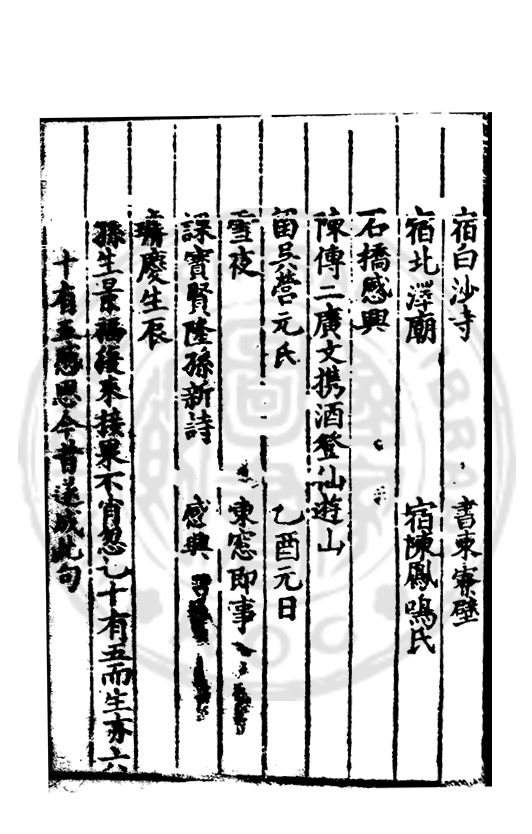 宿白沙寺 書東寮壁
宿北澤廟 宿陳鳳鳴氏
石橋感興
陳傳二廣文携酒登仙遊山
留吳營元氏 乙酉元日
雪夜 東窓即事
課寶賢隆孫新詩 感興
慶生辰
孫生最福緩來接果不肖忽七十有五而生亦六
十有五感思今昔遂成此句